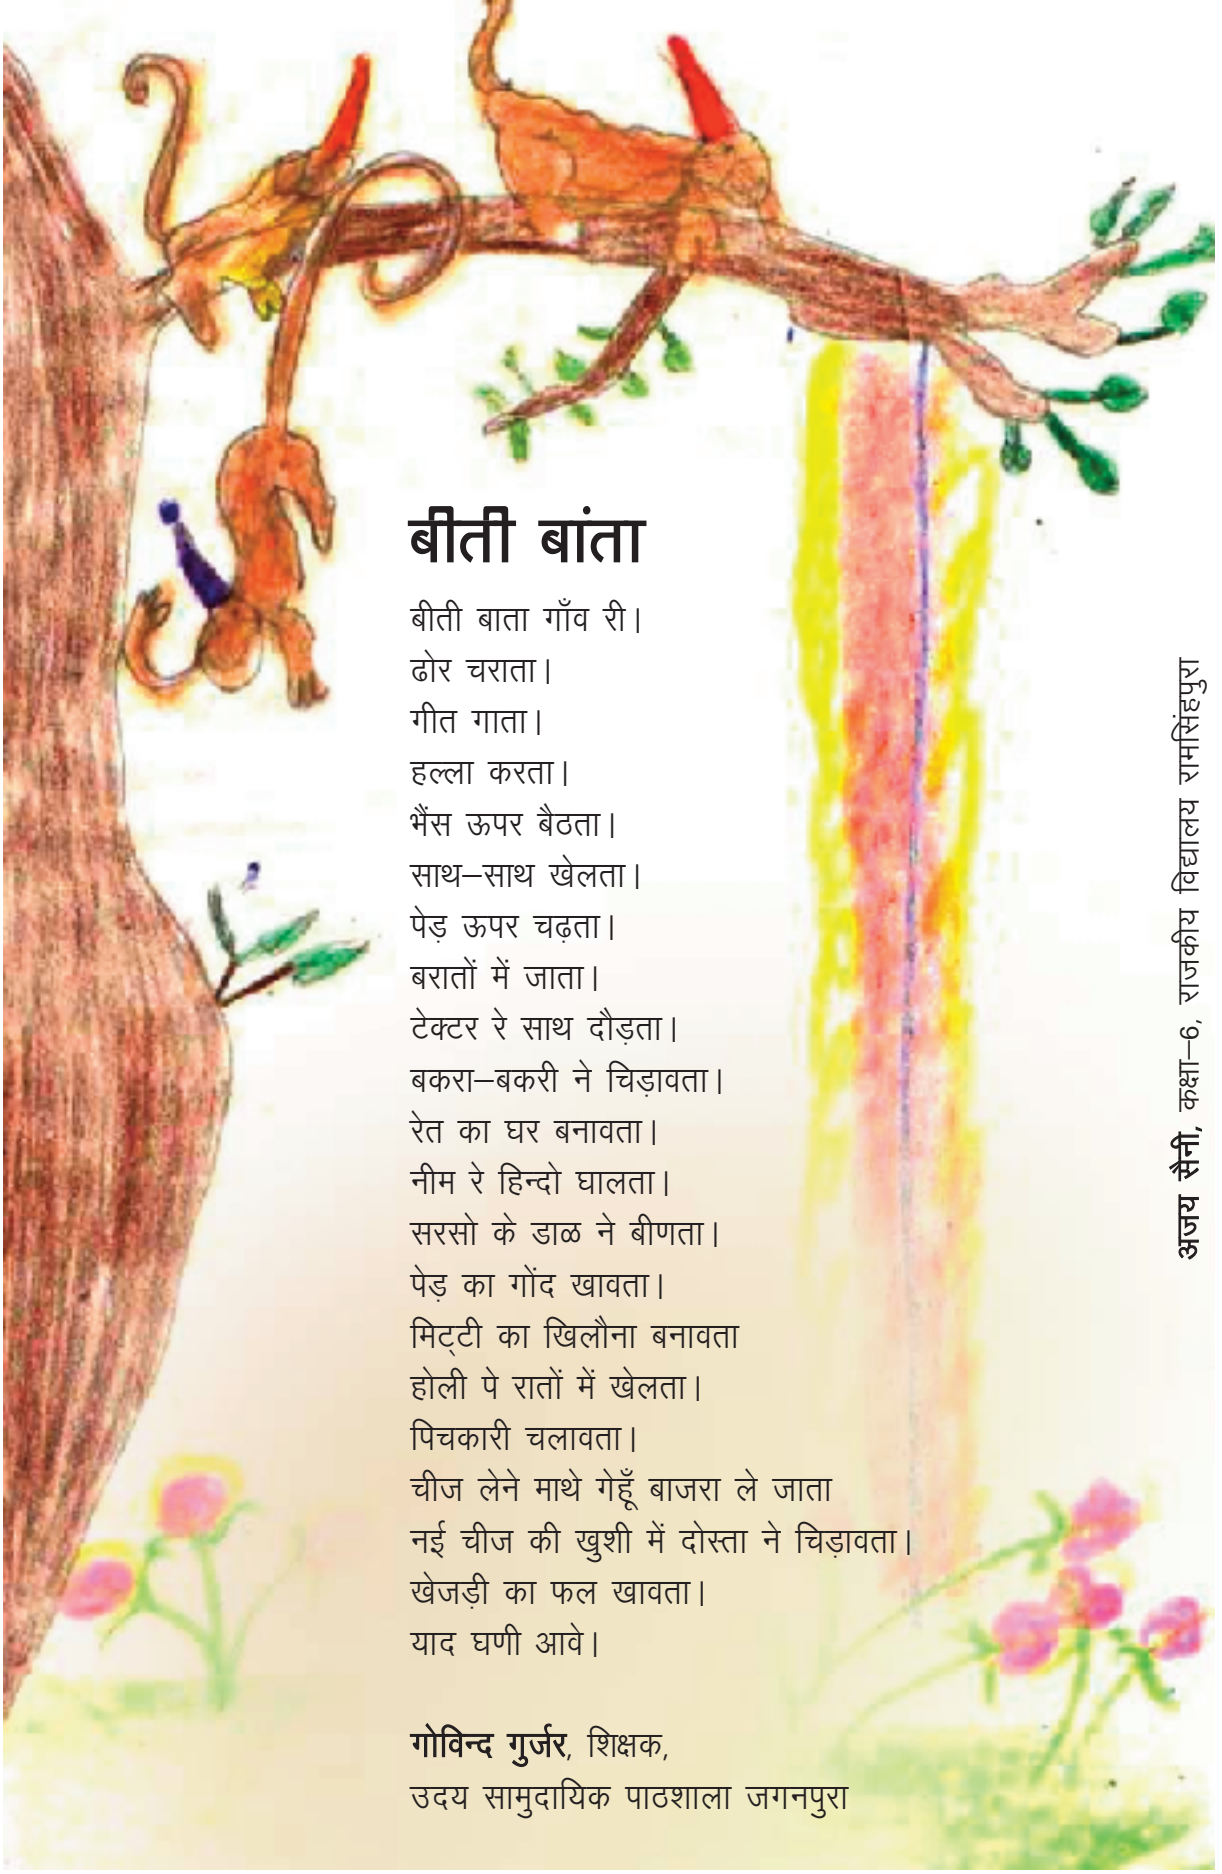 बीती बांता
बीती बाता गाँव री।
ढोर चराता।
गीत गाता।
हल्ला करता।
भैंस ऊपर बैठता।
साथ–साथ खेलता।
पेड़ ऊपर चढ़ता।
बरातों में जाता।
टेक्टर रे साथ दौड़ता।
बकरा–बकरी ने चिड़ावता।
रेत का घर बनावता।
नीम रे हिन्दो घालता।
सरसो के डाळ ने बीणता।
पेड़ का गोंद खावता।
मिट्टी का खिलौना बनावता
होली पे रातों में खेलता।
पिचकारी चलावता।
चीज लेने माथे गेहूँ बाजरा ले जाता
नई चीज की खुशी में दोस्ता ने चिड़ावता।
खेजड़ी का फल खावता।
याद घणी आवे।
गोविन्द गुर्जर, शिक्षक,
उदय सामुदायिक पाठशाला जगनपुरा
अजय सैनी, कक्षा–6, राजकीय विद्यालय रामसिंहपुरा